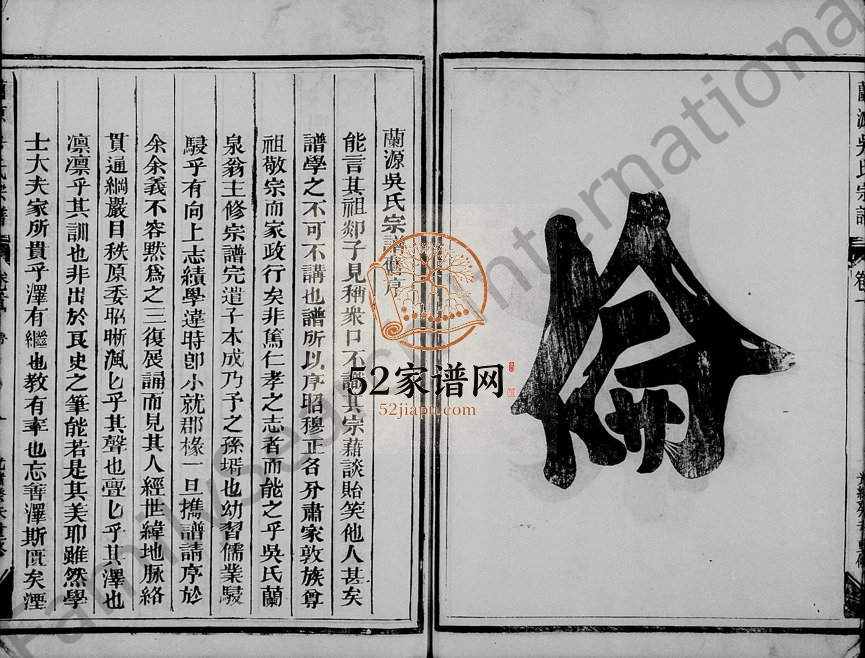 蘭源吳氏宗譜
卷
倫
蘭源吳氏宗譜舊序
能言其祖郯子見稱衆口不識其宗藉談貽笑他人甚矣
譜學之不可不講也譜所以序昭穆正名分肅家敦族尊
祖敬宗而家政行矣非篤仁孝之志者而能之乎吳氏蘭
泉翁主修宗譜完造子本成乃予之孫壻也幼習儒業駸
駸乎有向上志績學違時卽小就郡椽一旦携譜請序於
余余義不容默爲之三復展誦而見其人經世緯地脉絡
貫通綱嚴目秩原委昭晰渢匕乎其聲也亹匕乎其澤也
凛凛乎其訓也非出於良史之筆能若是其美耶雖然學
士大夫家所貴乎澤有繼也教有率也忘善澤斯匱矣湮
氏宗譜
卷
52家谱网
52jiapu.com
FamilySearch International